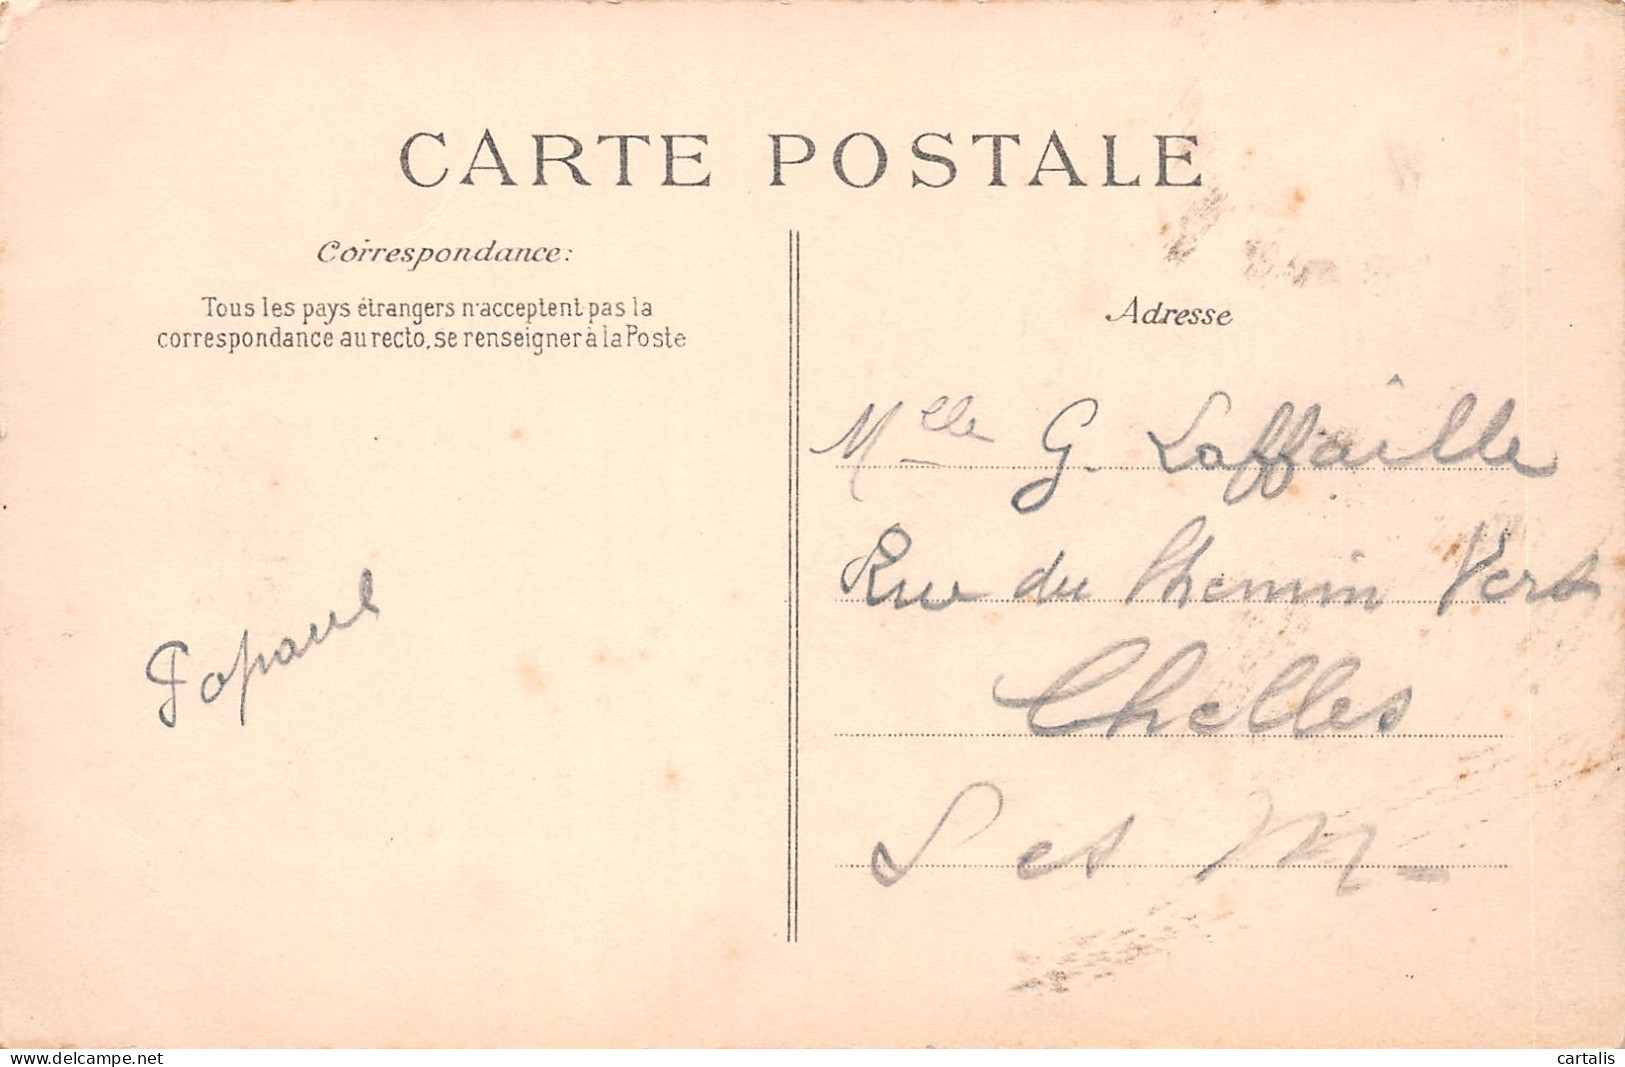 CARTE POSTALE
Correspondance:
Tous les pays étrangers n'acceptent pas la
correspondance au recto, se renseigner à la Poste
Papaul
Adresse
Mlle G. Laffaille
Rue du Chemin Vert
Chelles
S et M-
www.delcampe.net
cartalis